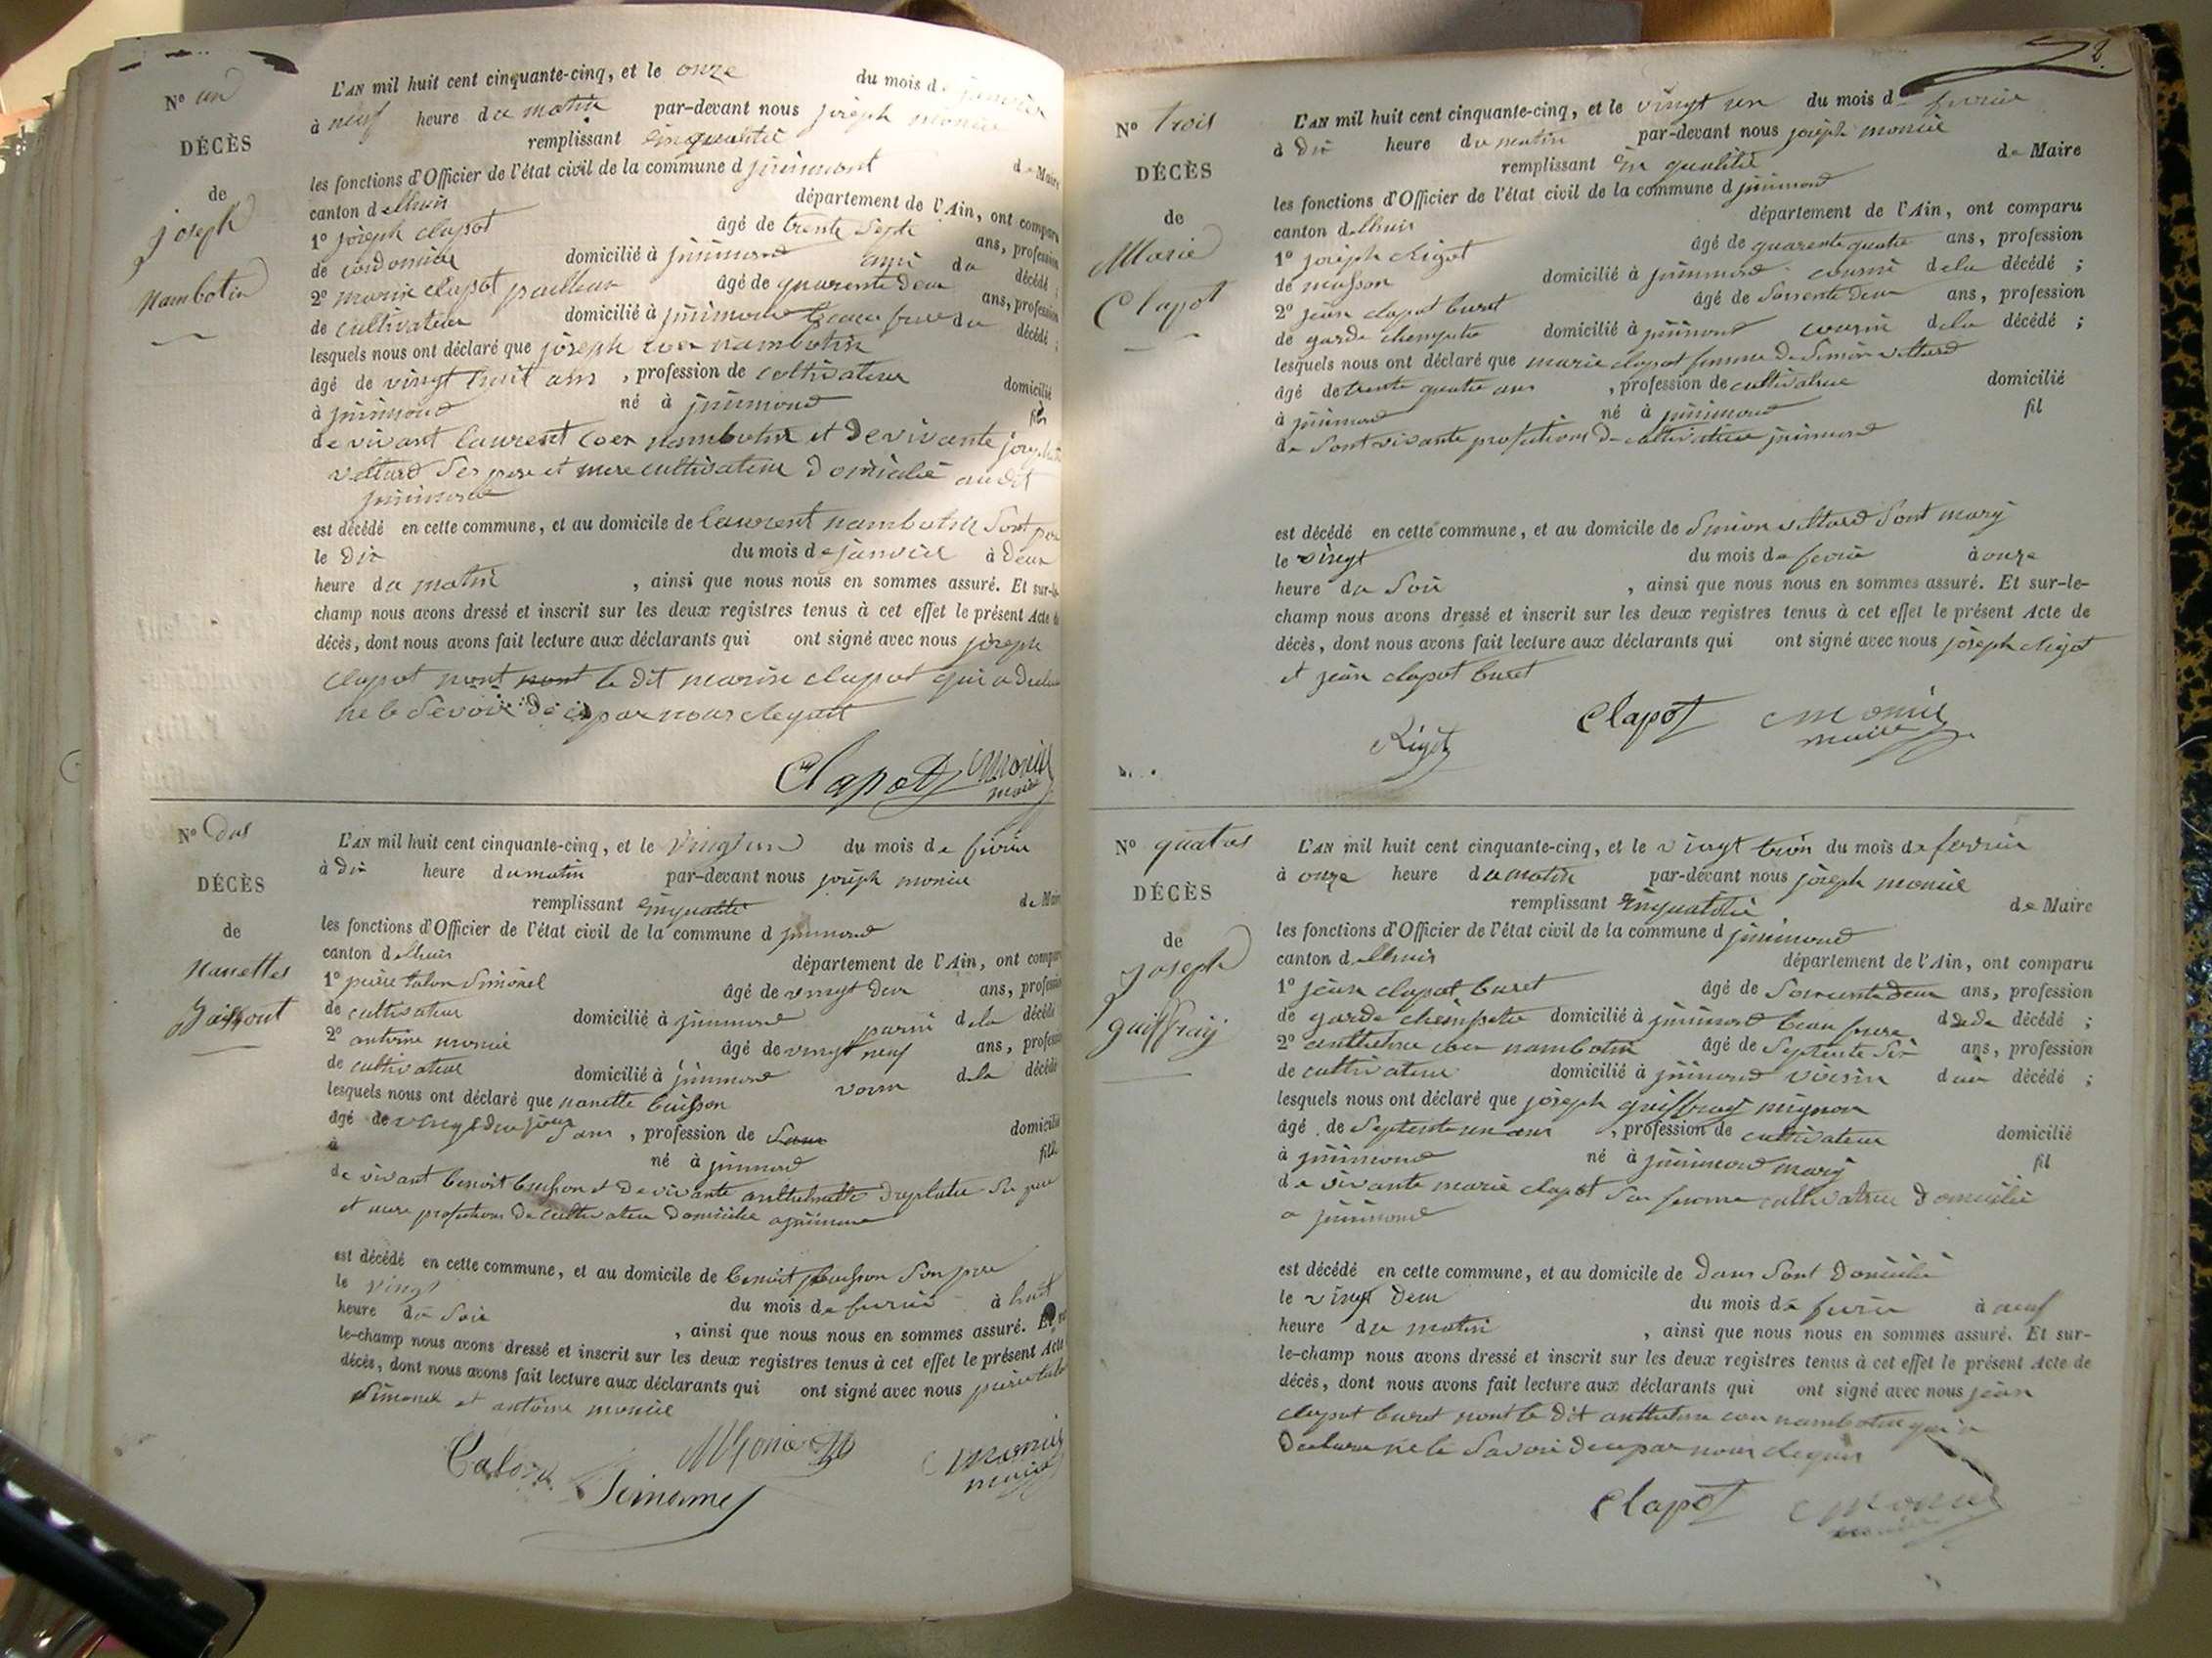 Nº un
DÉCÈS
de
joseph
nambotin
L'AN mil huit cent cinquante-cinq, et le onze du mois de janvier
à neuf heure du matin par-devant nous joseph monier
remplissant en qualité de Maire
les fonctions d'Officier de l'état civil de la commune d jnimont
canton d lhuis département de l'Ain, ont comparu
1º joseph clapot âgé de trente sept ans, profession
de cordonier domicilié à jnimond ami du décédé ;
2º marin clapot âgé de quarente deux ans, profession
de cultivateur domicilié à jnimond beau frere du décédé ;
lesquels nous ont déclaré que joseph nambotin
âgé de vingt huit ans , profession de cultivateur domicilié
à jnimond né à jnimond fils
de vivant laurent nambotin et de vivante
vettard ses pere et mere cultivateur domicilié audit
jnimond
est décédé en cette commune, et au domicile de laurent nambotin sont pere
le dix du mois de janvier à deux
heure du matin , ainsi que nous nous en sommes assuré. Et sur-le-
champ nous avons dressé et inscrit sur les deux registres tenus à cet effet le présent Acte de
décès, dont nous avons fait lecture aux déclarants qui ont signé avec nous joseph
clapot nont le dit marin clapot qui a
ne le savoir de par nous
Clapot Monier
maire
Nº
DÉCÈS
de
Nanettes
L'AN mil huit cent cinquante-cinq, et le vingt un du mois de
à dix heure du matin par-devant nous joseph monier
remplissant en qualité de Maire
les fonctions d'Officier de l'état civil de la commune d jnimond
canton d lhuis département de l'Ain, ont comparu
1º talon simonel âgé de vingt deux ans, profession
de cultivateur domicilié à jnimond parin de la décédé
2º antoine monier âgé de vingt neuf ans, profession
de cultivateur domicilié à jnimond de la décédé
lesquels nous ont déclaré que nanette buisson
âgé de vingt deux jours ans , profession de sans domicilié
à né à jnimond fille
de vivant benoit buisson et de vivante
et mere de cultivateur domicilié a jnimond
est décédé en cette commune, et au domicile de benoit buisson son pere
le vingt du mois de à huit
heure du soir , ainsi que nous nous en sommes assuré. Et sur-
le-champ nous avons dressé et inscrit sur les deux registres tenus à cet effet le présent Acte
décès, dont nous avons fait lecture aux déclarants qui ont signé avec nous
simonel et antoine monier
Talon Monier Monier
Simonel maire
2.
Nº trois
DÉCÈS
de
Marie
Clapot
L'AN mil huit cent cinquante-cinq, et le vingt un du mois de
à dix heure du matin par-devant nous joseph monier
remplissant en qualité de Maire
les fonctions d'Officier de l'état civil de la commune d jnimond
canton d lhuis département de l'Ain, ont comparu
1º joseph Rigot âgé de quarente quatre ans, profession
de masson domicilié à jnimond cousin de la décédé ;
2º jean clapot buret âgé de soisente deux ans, profession
de garde domicilié à jnimond cousin de la décédé ;
lesquels nous ont déclaré que marie clapot femme de Simon vettard
âgé de trente quatre ans , profession de cultivatrice domicilié
à jnimond né à jnimond fil
de sont vivante de cultivatrice jnimond
est décédé en cette commune, et au domicile de Simon vettard sont mary
le vingt du mois de à onze
heure du soir , ainsi que nous nous en sommes assuré. Et sur-le-
champ nous avons dressé et inscrit sur les deux registres tenus à cet effet le présent Acte de
décès, dont nous avons fait lecture aux déclarants qui ont signé avec nous joseph Rigot
et jean clapot buret
Rigot Clapot Monier
maire
Nº quatres
DÉCÈS
de
joseph
guiffray
L'AN mil huit cent cinquante-cinq, et le vingt trois du mois de
à onze heure du matin par-devant nous joseph monier
remplissant en qualité de Maire
les fonctions d'Officier de l'état civil de la commune d jnimond
canton d lhuis département de l'Ain, ont comparu
1º jean clapot buret âgé de ans, profession
de garde domicilié à jnimond beau frere décédé ;
2º nambotin âgé de septente six ans, profession
de cultivateur domicilié à jnimond voisin décédé ;
lesquels nous ont déclaré que joseph guiffray mignon
âgé de septente un ans , profession de cultivateur domicilié
à jnimond né à jnimond mary fil
de vivante marie clapot sa femme cultivatrice domicilié
a jnimond
est décédé en cette commune, et au domicile de dans sont domicile
le vingt deux du mois de à neuf
heure du matin , ainsi que nous nous en sommes assuré. Et sur-
le-champ nous avons dressé et inscrit sur les deux registres tenus à cet effet le présent Acte de
décès, dont nous avons fait lecture aux déclarants qui ont signé avec nous jean
clapot buret nont le dit nambotin qui a
ne le savoir par nous
Clapot Monier